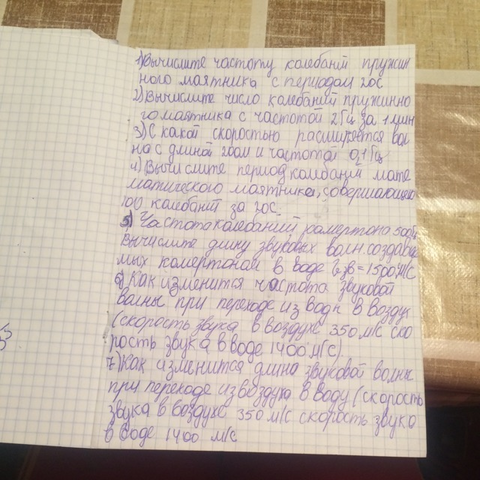 1) Вычислите частоту колебаний пружин
ного маятника с периодом 20с
2) Вычислите число колебаний пружинно
го маятника с частотой 2Гц за 1 мин
3) С какой скоростью расширяется вол
на с длиной 200м и частотой 0,1Гц
4) Вычислите период колебаний мате
матического маятника, совершающе
го колебаний за 20с.
5) Частота колебаний камертона 500Гц
Вычислите длину звуковых волн создавае
мых камертоном в воде зв=1500м/с
6) Как изменится частота звуковой
волны при переходе из воды в воздух
(скорость звука в воздухе 350 м/с ско
рость звука в воде 1400 м/с)
7) Как изменится длина звуковой волны
при переходе из воздуха в воду (скорость
звука в воздухе 350 м/с скорость звука
в воде 1400 м/с